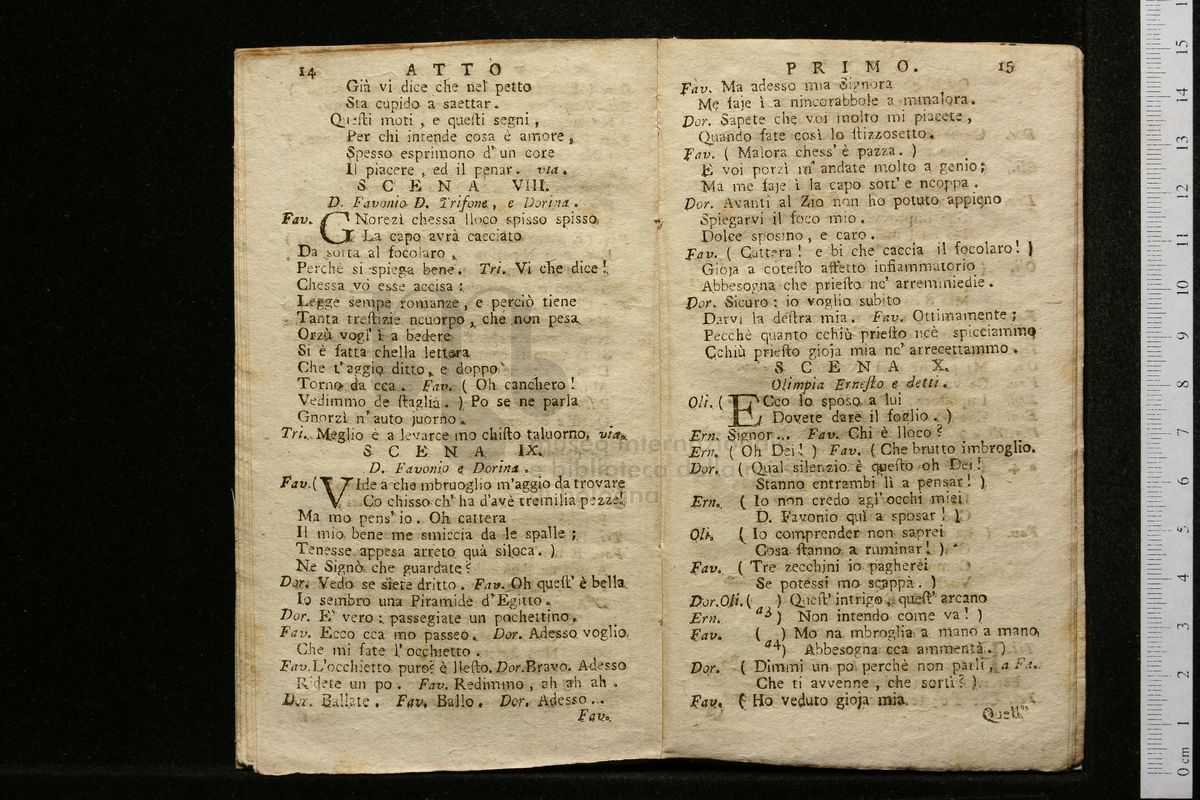 14 ATTO
Già vi dice che nel petto
Sta cupido a saettar.
Questi moti, e questi segni,
Per chi intende cosa è amore,
Spesso esprimono d'un core
Il piacere, ed il penar. via.
SCENA VIII.
D. Favonio D. Trifone, e Dorina.
Fav. GNorezì chessa lloco spisso spisso
La capo avrà cacciato
Da sotta al focolaro,
Perchè si spiega bene. Tri. Vi che dice!
Chessa vò esse accisa:
Legge sempe romanze, e perciò tiene
Tanta trestizie ncuorpo, che non pesa
Orzù vogl' ì a bedere
Si è fatta chella lettera
Che t'aggio ditto, e doppo
Torno da cca. Fav. (Oh canchero!
Vedimmo de staglià.) Po se ne parla
Gnorzì n'auto juorno.
Tri. Meglio è a levarce mo chisto taluorno. via.
SCENA IX.
D. Favonio e Dorina.
Fav. (VIde a che mbruoglio m'aggio da trovare
Co chisso ch' ha d'avè tremilia pezze!
Ma mo pens' io. Oh cattera
Il mio bene me smiccia da le spalle;
Tenesse appesa arreto quà siloca.)
Ne Signò che guardate?
Dor. Vedo se siete dritto. Fav. Oh quest' è bella
Io sembro una Piramide d'Egitto.
Dor. E' vero: passegiate un pochettino.
Fav. Ecco cca mo passeo. Dor. Adesso voglio,
Che mi fate l'occhietto.
Fav. L'occhietto puro? è llesto. Dor. Bravo. Adesso
Ridete un po. Fav. Redimmo, ah ah ah.
Dor. Ballate. Fav. Ballo. Dor. Adesso...
Fav.
PRIMO. 15
Fav. Ma adesso mia Signora
Me faje ì a nincorabbole a mmalora.
Dor. Sapete che voi molto mi piacete,
Quando fate così lo stizzosetto.
Fav. (Malora chess' è pazza.)
E voi porzì m' andate molto a genio;
Ma me faje ì la capo sott' e ncoppa.
Dor. Avanti al Zio non ho potuto appieno
Spiegarvi il foco mio.
Dolce sposino, e caro.
Fav. (Cattera! e bi che caccia il focolaro!)
Gioja a cotesto affetto infiammatorio
Abbesogna che priesto nc' arremmiedie.
Dor. Sicuro: io voglio subito
Darvi la destra mia. Fav. Ottimamente;
Pecchè quanto cchiù priesto ncè spicciammo
Cchiù priesto gioja mia nc' arrecettammo.
SCENA X.
Olimpia Ernesto e detti.
Oli. (ECco lo sposo a lui
Dovete dare il foglio.)
Ern. Signor... Fav. Chi è lloco?
Ern. (Oh Dei!) Fav. (Che brutto imbroglio.
Dor. (Qual silenzio è questo oh Dei!
Stanno entrambi lì a pensar!)
Ern. (Io non credo agl' occhi miei
D. Favonio quì a sposar!)
Oli. (Io comprender non saprei
Cosa stanno a ruminar!)
Fav. (Tre zecchini io pagherei
Se potessi mo scappà.)
Dor. Oli. ( ) Quest' intrigo, quest' arcano
Ern. a3 ) Non intendo come va!)
Fav. ( ) Mo na mbroglia a mano a mano,
a4) Abbesogna cca ammentà.)
Dor. (Dimmi un po perchè non parli, a Fa.
Che ti avvenne, che sortì?)
Fav. (Ho veduto gioja mia.
Quell'
museo internazionale
e biblioteca della musica
0 cm 1 2 3 4 5 6 7 8 9 10 11 12 13 14 15